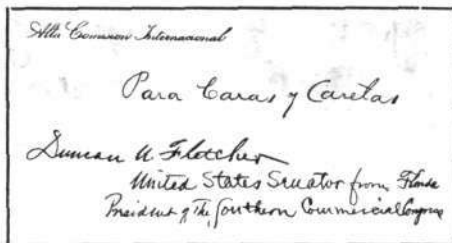 Alta Comision Internacional
Para Caras y Caretas
Duncan U. Fletcher
United States Senator from Florida
President of The Southern Commercial Congress